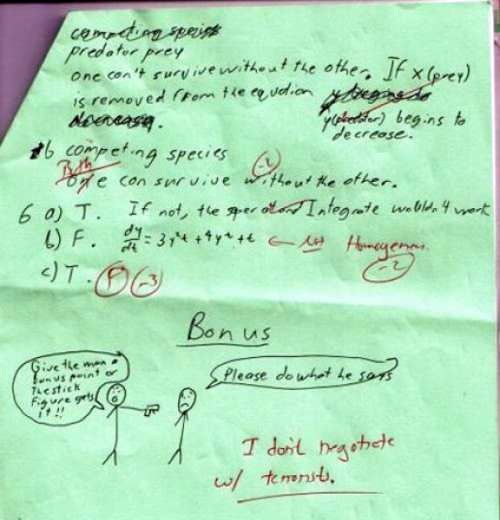 competing species
predator prey
one can't survive without the other. If x (prey)
is removed from the equation y begins to
decrease. y(predator) begins to
decrease.
b competing species
Both
One can survive without the other. -2
6 a) T. If not, the operation Integrate wouldn't work
b) F. dy/dt = 3y²t + 4y² + t ← not Homogenous.
-2
c) T. F -3
Bonus
Give the man a
bonus point or
the stick
figure gets
it!!
Please do what he says
I don't negotiate
w/ terrorists.